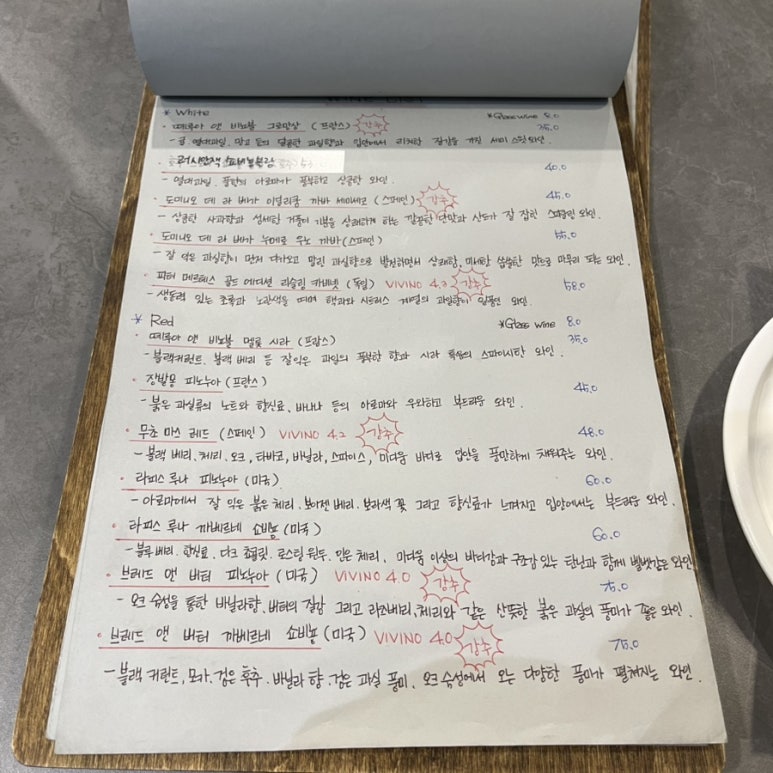 WINE LIST
* White *Glass wine 8.0
• 떼루아 앤 비노블 그로망상 (프랑스) 강추 35.0
- 귤, 열대과일, 망고 등의 달콤한 과실향과 입안에서 리치한 질감을 가진 세미 스위트 와인.
• 러시안잭 쇼비뇽블랑 40.0
- 열대과일, 풀향의 아로마가 풍부하고 상큼한 와인.
• 도미니오 데 라 베가 이딜리쿰 까바 (스페인) 강추 45.0
- 상큼한 사과향과 섬세한 거품이 기분을 상쾌하게 하는 깔끔한 단맛과 산도가 잘 잡힌 스파클링 와인.
• 도미니오 데 라 베가 누메로 우노 까바 (스페인) 55.0
- 잘 익은 과실향이 먼저 다가오고 말린 과실향으로 발전하면서 상쾌함, 미세한 씁쓸한 맛으로 마무리 되는 와인.
• 피터 메르테스 골드 에디션 리슬링 카비넷 (독일) VIVINO 4.3 강추 58.0
- 생동력 있는 초록과 노란색을 띠며 핵과와 시트러스 계열의 과일향이 일품인 와인.
* Red *Glass wine 8.0
• 떼루아 앤 비노블 멜롯 시라 (프랑스) 35.0
- 블랙커런트, 블랙 베리 등 잘익은 과일의 풍부한 향과 시라 특유의 스파이시한 와인.
• 장발몽 피노누아 (프랑스) 45.0
- 붉은 과실류의 노트와 향신료, 바나나 등의 아로마와 우아하고 부드러운 와인.
• 무쵸 마스 레드 (스페인) VIVINO 4.2 강추 48.0
- 블랙 베리, 체리, 오크, 타바코, 바닐라, 스파이스, 미디움 바디로 입안을 풍만하게 채워주는 와인.
• 라피스 루나 피노누아 (미국) 60.0
- 아로마에서 잘 익은 붉은 체리, 보이젠 베리, 보라색 꽃 그리고 향신료가 느껴지고 입안에서는 부드러운 와인.
• 라피스 루나 까베르네 쇼비뇽 (미국) 60.0
- 블루 베리, 향신료, 다크 초콜릿, 로스팅 원두, 익은 체리, 미디움 이상의 바디감과 구조감 있는 탄닌과 함께 벨벳같은 와인
• 브레드 앤 버터 피노누아 (미국) VIVINO 4.0 강추 75.0
- 오크 숙성을 통한 바닐라향, 버터의 질감 그리고 라즈베리, 체리와 같은 산뜻한 붉은 과실의 풍미가 좋은 와인.
• 브레드 앤 버터 까베르네 쇼비뇽 (미국) VIVINO 4.0 강추 75.0
- 블랙 커런트, 모카, 검은 후추, 바닐라 향, 검은 과실 풍미, 오크 숙성에서 오는 다양한 풍미가 펼쳐지는 와인.